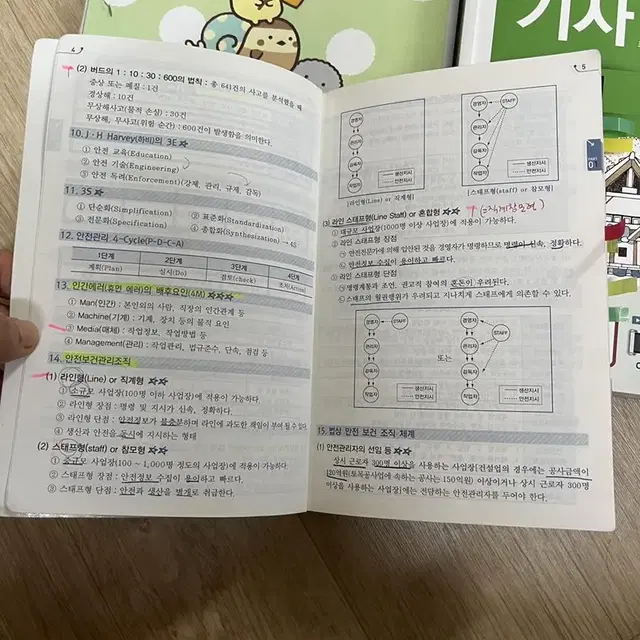 기사
4
(2) 버드의 1 : 10 : 30 : 600의 법칙 : 총 641건의 사고를 분석했을 때
중상 또는 폐질 : 1건
경상해 : 10건
무상해사고(물적 손실) : 30건
무상해, 무사고(위험 순간) : 600건이 발생함을 의미한다.
10. J·H Harvey(하비)의 3E ☆
① 안전 교육(Education)
② 안전 기술(Engineering)
③ 안전 독려(Enforcement)(강제, 관리, 규제, 감독)
11. 3S ☆
① 단순화(Simplification) ② 표준화(Standardization)
③ 전문화(Specification) ④ 총합화(Synthesization) → 4S
12. 안전관리 4-Cycle(P-D-C-A)
1단계 2단계 3단계 4단계
계획(Plan) 실시(Do) 검토(check) 조처(Action)
13. 인간에러(휴먼 에러)의 배후요인(4M) ☆☆☆
① Man(인간) : 본인외의 사람, 직장의 인간관계 등
② Machine(기계) : 기계, 장치 등의 물적 요인
③ Media(매체) : 작업정보, 작업방법 등
④ Management(관리) : 작업관리, 법규준수, 단속, 점검 등
14. 안전보건관리조직
(1) 라인형(Line) or 직계형 ☆☆
① 소규모 사업장(100명 이하 사업장)에 적용이 가능하다.
② 라인형 장점 : 명령 및 지시가 신속, 정확하다.
③ 라인형 단점 : 안전정보가 불충분하며 라인에 과도한 책임이 부여될 수 있다.
④ 생산과 안전을 동시에 지시하는 형태
(2) 스태프형(staff) or 참모형 ☆☆
① 중규모 사업장(100∼1,000명 정도의 사업장)에 적용이 가능하다
② 스태프형 장점 : 안전정보 수집이 용이하고 빠르다.
③ 스태프형 단점 : 안전과 생산을 별개로 취급한다.
5
PART
01
경영자
관리자
감독자
작업자
생산지시
안전지시
[라인형(Line) or 직계형]
경영자
STAFF
관리자
감독자
작업자
생산지시
안전지시
[스태프형(staff) or 참모형]
(3) 라인 스태프형(Line Staff) or 혼합형 ☆☆ (=직계참모형)
① 대규모 사업장(1000명 이상 사업장)에 적용이 가능하다.
② 라인 스태프형 장점
안전전문가에 의해 입안된 것을 경영자가 명령하므로 명령이 신속, 정확하다.
안전정보 수집이 용이하고 빠르다.
③ 라인 스태프형 단점
명령계통과 조언, 권고적 참여의 혼돈이 우려된다.
스태프의 월권행위가 우려되고 지나치게 스태프에게 의존할 수 있다.
경영자
STAFF
관리자
감독자
작업자
생산지시
안전지시
또는
경영자
STAFF
관리자
감독자
작업자
생산지시
안전지시
15. 법상 안전 보건 조직 체계
(1) 안전관리자의 선임 등 ☆☆
상시 근로자 300명 이상을 사용하는 사업장[건설업의 경우에는 공사금액이
120억원(토목공사업에 속하는 공사는 150억원) 이상이거나 상시 근로자 300명
이상을 사용하는 사업장]에는 전담하는 안전관리자를 두어야 한다.